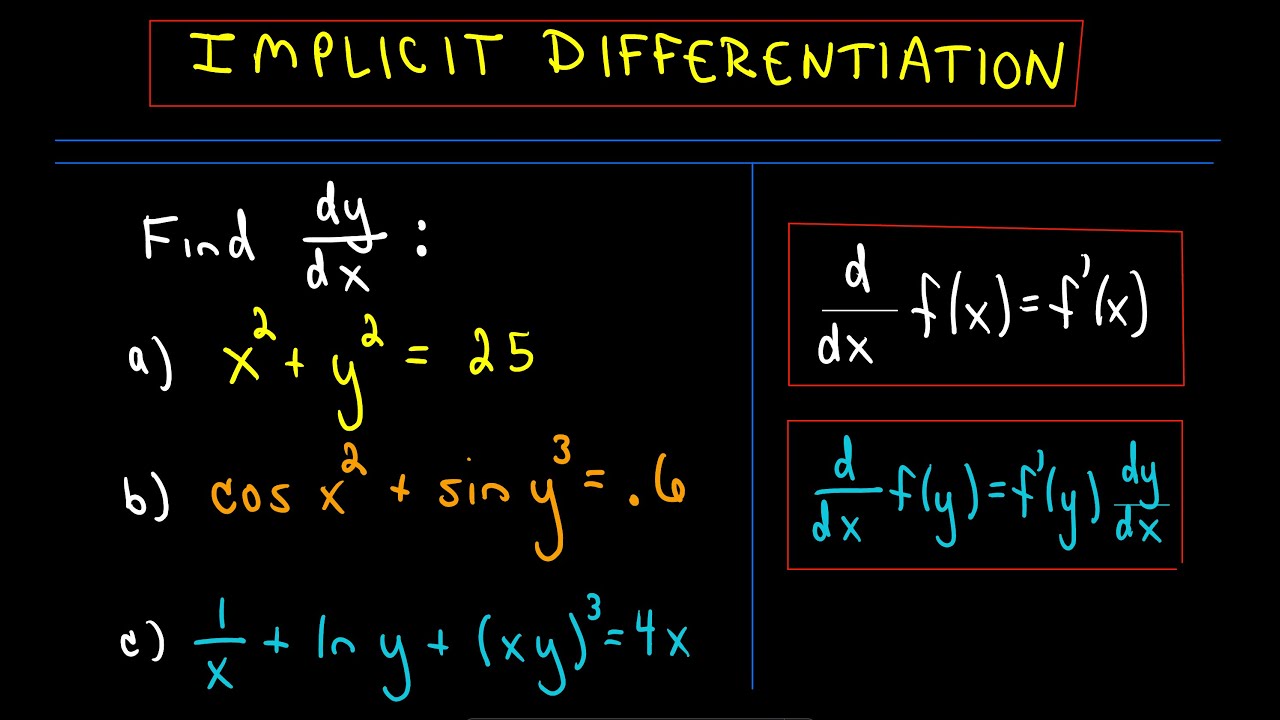 IMPLICIT DIFFERENTIATION
Find dy/dx :
a) x² + y² = 25
b) cos x² + sin y³ = .6
c) 1/x + ln y + (xy)³ = 4x
d/dx f(x) = f'(x)
d/dx f(y) = f'(y) dy/dx